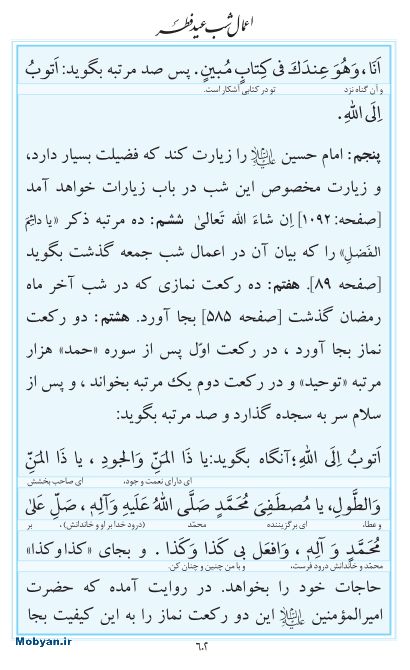 اعمال شب عید فطر
اَنَا ، وَهُوَ عِنْدَكَ فی كِتابٍ مُبینٍ . پس صد مرتبه بگوید: اَتوُبُ
و آن گناه نزد تو در کتابی آشکار است.
اِلَی اللهِ .
پنجم: امام حسین علیه‌السلام را زیارت کند که فضیلت بسیار دارد،
و زیارت مخصوص این شب در باب زیارات خواهد آمد
[صفحه: ۱۰۹۲] اِن شاءَ الله تَعالیٰ ششم: ده مرتبه ذکر «یا دائِمَ
الفَضلِ» را که بیان آن در اعمال شب جمعه گذشت بگوید
[صفحه ۸۹]. هفتم: ده رکعت نمازی که در شب آخر ماه
رمضان گذشت [صفحه ۵۸۵] بجا آورد. هشتم: دو رکعت
نماز بجا آورد ، در رکعت اوّل پس از سوره «حمد» هزار
مرتبه «توحید» و در رکعت دوم یك مرتبه بخواند ، و پس از
سلام سر به سجده گذارد و صد مرتبه بگوید:
اَتوُبُ اِلَی اللهِ ؛ آنگاه بگوید: یا ذَا الْمَنِّ وَالجوُدِ ، یا ذَا المَنِّ
ای دارای نعمت و جود، ای صاحب بخشش
وَالطَّولِ، یا مُصطَفِیَ مُحَمَّدٍ صَلَّی اللهُ عَلَیهِ وَآلِهِ ، صَلِّ عَلیٰ
و عطا، ای برگزیننده محمّد (درود خدا بر او و خاندانش) ، بر
مُحَمَّدٍ وَ آلِهِ ، وَافعَل بی كَذا وَكَذا . و بجای «كذا وكذا»
محمّد و خاندانش درود فرست، و با من چنین و چنان کن.
حاجات خود را بخواهد. در روایت آمده که حضرت
امیرالمؤمنین علیه‌السلام این دو رکعت نماز را به این کیفیت بجا
۶۰۲
Mobyan.ir